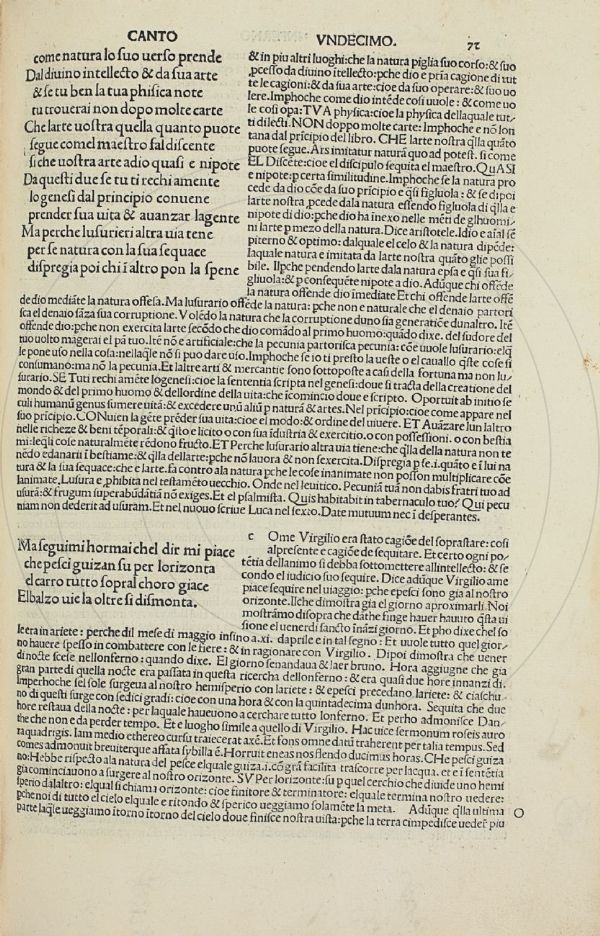 CANTO
VNDECIMO.
72
come natura lo suo uerso prende
Dal diuino intellecto & da sua arte
& se tu ben la tua phisica note
tu trouerai non dopo molte carte
Che larte uostra quella quanto puote
segue comel maestro fal discente
si che uostra arte adio quasi e nipote
Da questi due se tu ti rechi amente
lo genesi dal principio conuene
prender sua uita & auanzar lagente
Ma perche lusurieri altra uia tene
per se natura con la sua sequace
dispregia poi chi ī altro pon la spene
& in piu altri luoghi:che la natura piglia suo corso:& suo
ꝓcesso da diuino ītellecto:ꝑche dio e pria cagione di tut
te le cagioni:& da sua arte:cioe da suo operare:& suo uo
lere.Imphoche come dio intēde cosi uuole : & come uo
le cosi opa:TVA physica:cioe la physica dellaquale tut/
ti dilecti.NON doppo molte carte:Imphoche e nō lon
tana dal prīcipio del libro. CHE larte nostra q̄lla quāto
puote segue.Ars imitatur naturā quo ad potest. si come
EL Discēte:cioe el discipulo seguita el maestro.QuASI
e nipote:ꝑ certa similitudine.Imphoche se la natura pro
cede da dio cōe da suo prīcipio e q̄si figluola : & se dipoi
larte nostra ꝓcede dala natura essendo figluola di q̄lla e
nipote di dio:ꝑche dio ha inexo nelle mēti de glhuomi/
ni larte ꝑ mezo della natura.Dice aristotele.Idio e aīal sē
piterno & optimo: dalquale el celo & la natura dipēde:
laquale e imitata da larte nostra quāto glie possi
bile. Ilꝑche pendendo larte dala natura epsa e q̄si sua fi/
gliuola:& ꝑ consequēte nipote a dio. Adūque chi offēde
la natura offende dio īmediate Et chi offende larte offē
de dio mediāte la natura offesa.Ma lusurario offēde la natura: ꝑche non e naturale che el denaio partori
sca el denaio sāza sua corruptione. Volēdo la natura che la corruptione duno sia generatiōe dunaltro. Itē
offende dio:ꝑche non exercita larte secōdo che dio comādo al primo huomo:quādo dixe. del sudore del
tuo uolto magerai el pā tuo.Itē nō e artificiale:che la pecunia partorisca pecunia:cōe uuole lusurario:elq̄
le pone uso nella cosa:nellaq̄le nō si puo dare uso.Imphoche se io ti presto la ueste o el cauallo q̄ste cose si
consumano:ma nō la pecunia.Et laltre arti & mercantie sono sottoposte a casi della fortuna ma non lu/
surario.SE Tuti rechi amēte logenesi:cioe la sententia scripta nel genesi:doue si tracta della creatione del
mondo & del primo huomo & dellordine della uita:che īcomincio doue e scripto. Oportuit ab initio se
culi humanū genus sumere uitā:& excedere unū aliū ꝑ naturā & artes.Nel principio:cioe come appare nel
suo principio.CONuien la gēte prēder sua uita:cioe el modo:& ordine del uiuere. ET Auāzare lun laltro
nelle richeze & beni tēporali:& q̄sto e licito o con sua īdustria & exercitio.o con possessioni.o con bestia
mi:leq̄li cose naturalmēte rēdono fructo.ET Perche lusurario altra uia tiene:che q̄lla della natura non te
nēdo edanari ī bestiame:& q̄lla dellarte:ꝑche nō lauora & non sexercita.Dispregia ꝑ se.i.quāto e ī lui na
tura & la sua sequace:che e larte.fa contro ala natura ꝑche le cose inanimate non posson multiplicare cōe
lanimate.Lusura e ꝓhibita nel testamēto uecchio. Onde nel leuitico. Pecuniā tuā non dabis fratri tuo ad
usurā:& frugum superabūdātiā nō exiges.Et el psalmista. Quis habitabit in tabernaculo tuo? Qui pecu
niam non dederit ad usuram.Et nel nuouo scriue Luca nel sexto.Date mutuum nec ī desperantes.
Ma seguimi hormai chel dir mi piace
che pesci guizan su per lorizonta
el carro tutto sopral choro giace
Elbalzo uie la oltre si dismonta.
e Ome Virgilio era stato cagiōe del soprastare: cosi
al presente e cagiōe de sequitare. Et certo ogni po/
tētia dellanimo si debba sottomettere allintellecto:& se
condo el iudicio suo sequire. Dice adūque Virgilio ame
piace sequire nel uiaggio: ꝑche epesci sono gia al nostro
orizonte.Ilche dimostra gia el giorno aproximarli.Noi
mostrāmo disopra che dāthe finge hauer hauuto q̄sta ui
sione el uenerdi sancto īnāzi giorno. Et pho dixe chel so
le era in ariete: perche dal mese di maggio infino a.xi. daprile e in tal segno: Et uuole tutto quel gior/
no hauere speso in combattere con le fiere: & in ragionare con Virgilio. Dipoi dimostra che uener
di nocte scese nellonferno : quando dixe. El giorno senandaua & laer bruno. Hora aggiugne che gia
gran parte di quella nocte era passata in questa ricercha dellonferno : & era quasi due hore innanzi di.
Imperhoche sel sole surgeua al nostro hemisperio con lariete : & epesci precedano lariete: & ciaschu
no di questi surge con sedici gradi: cioe con una hora & con la quintadecima dunhora. Sequita che due
hore restaua della nocte: per laquale haueuono a cerchare tutto lonferno. Et perho admonisce Dan/
the che non e da perder tempo. Et e luogho simile a quello di Virgilio. Hac uice sermonum roseis auro
ra quadrigis. Iam medio ethereo cursu traiecerat axē.Et fons omne datū traherent per talia tempus.Sed
comes admonuit breuiterque affata sybilla ē. Horruit eneas nos flendo ducimus horas. CHe pesci guiza
no:Hebbe rispecto ala natura del pesce elquale guiza.i.cō grā facilita trascorre per lacqua. et e sētētia
gia cominciauono a surgere al nostro orizonte. SV Per lorizonte:su ꝑ quel cerchio che diuide uno hemi
sperio dalaltro: elqual si chiama orizonte: cioe finitore & terminatore: elquale termina nostro uedere:
ꝑche noi di tutto el cielo elquale e ritondo & sperico ueggiamo solamēte la meta. Adūque q̄lla ultima
parte laq̄le ueggiamo ītorno ītorno del cielo doue finisce nostra uista:ꝑche la terra cīpedisce uederꝭ piu